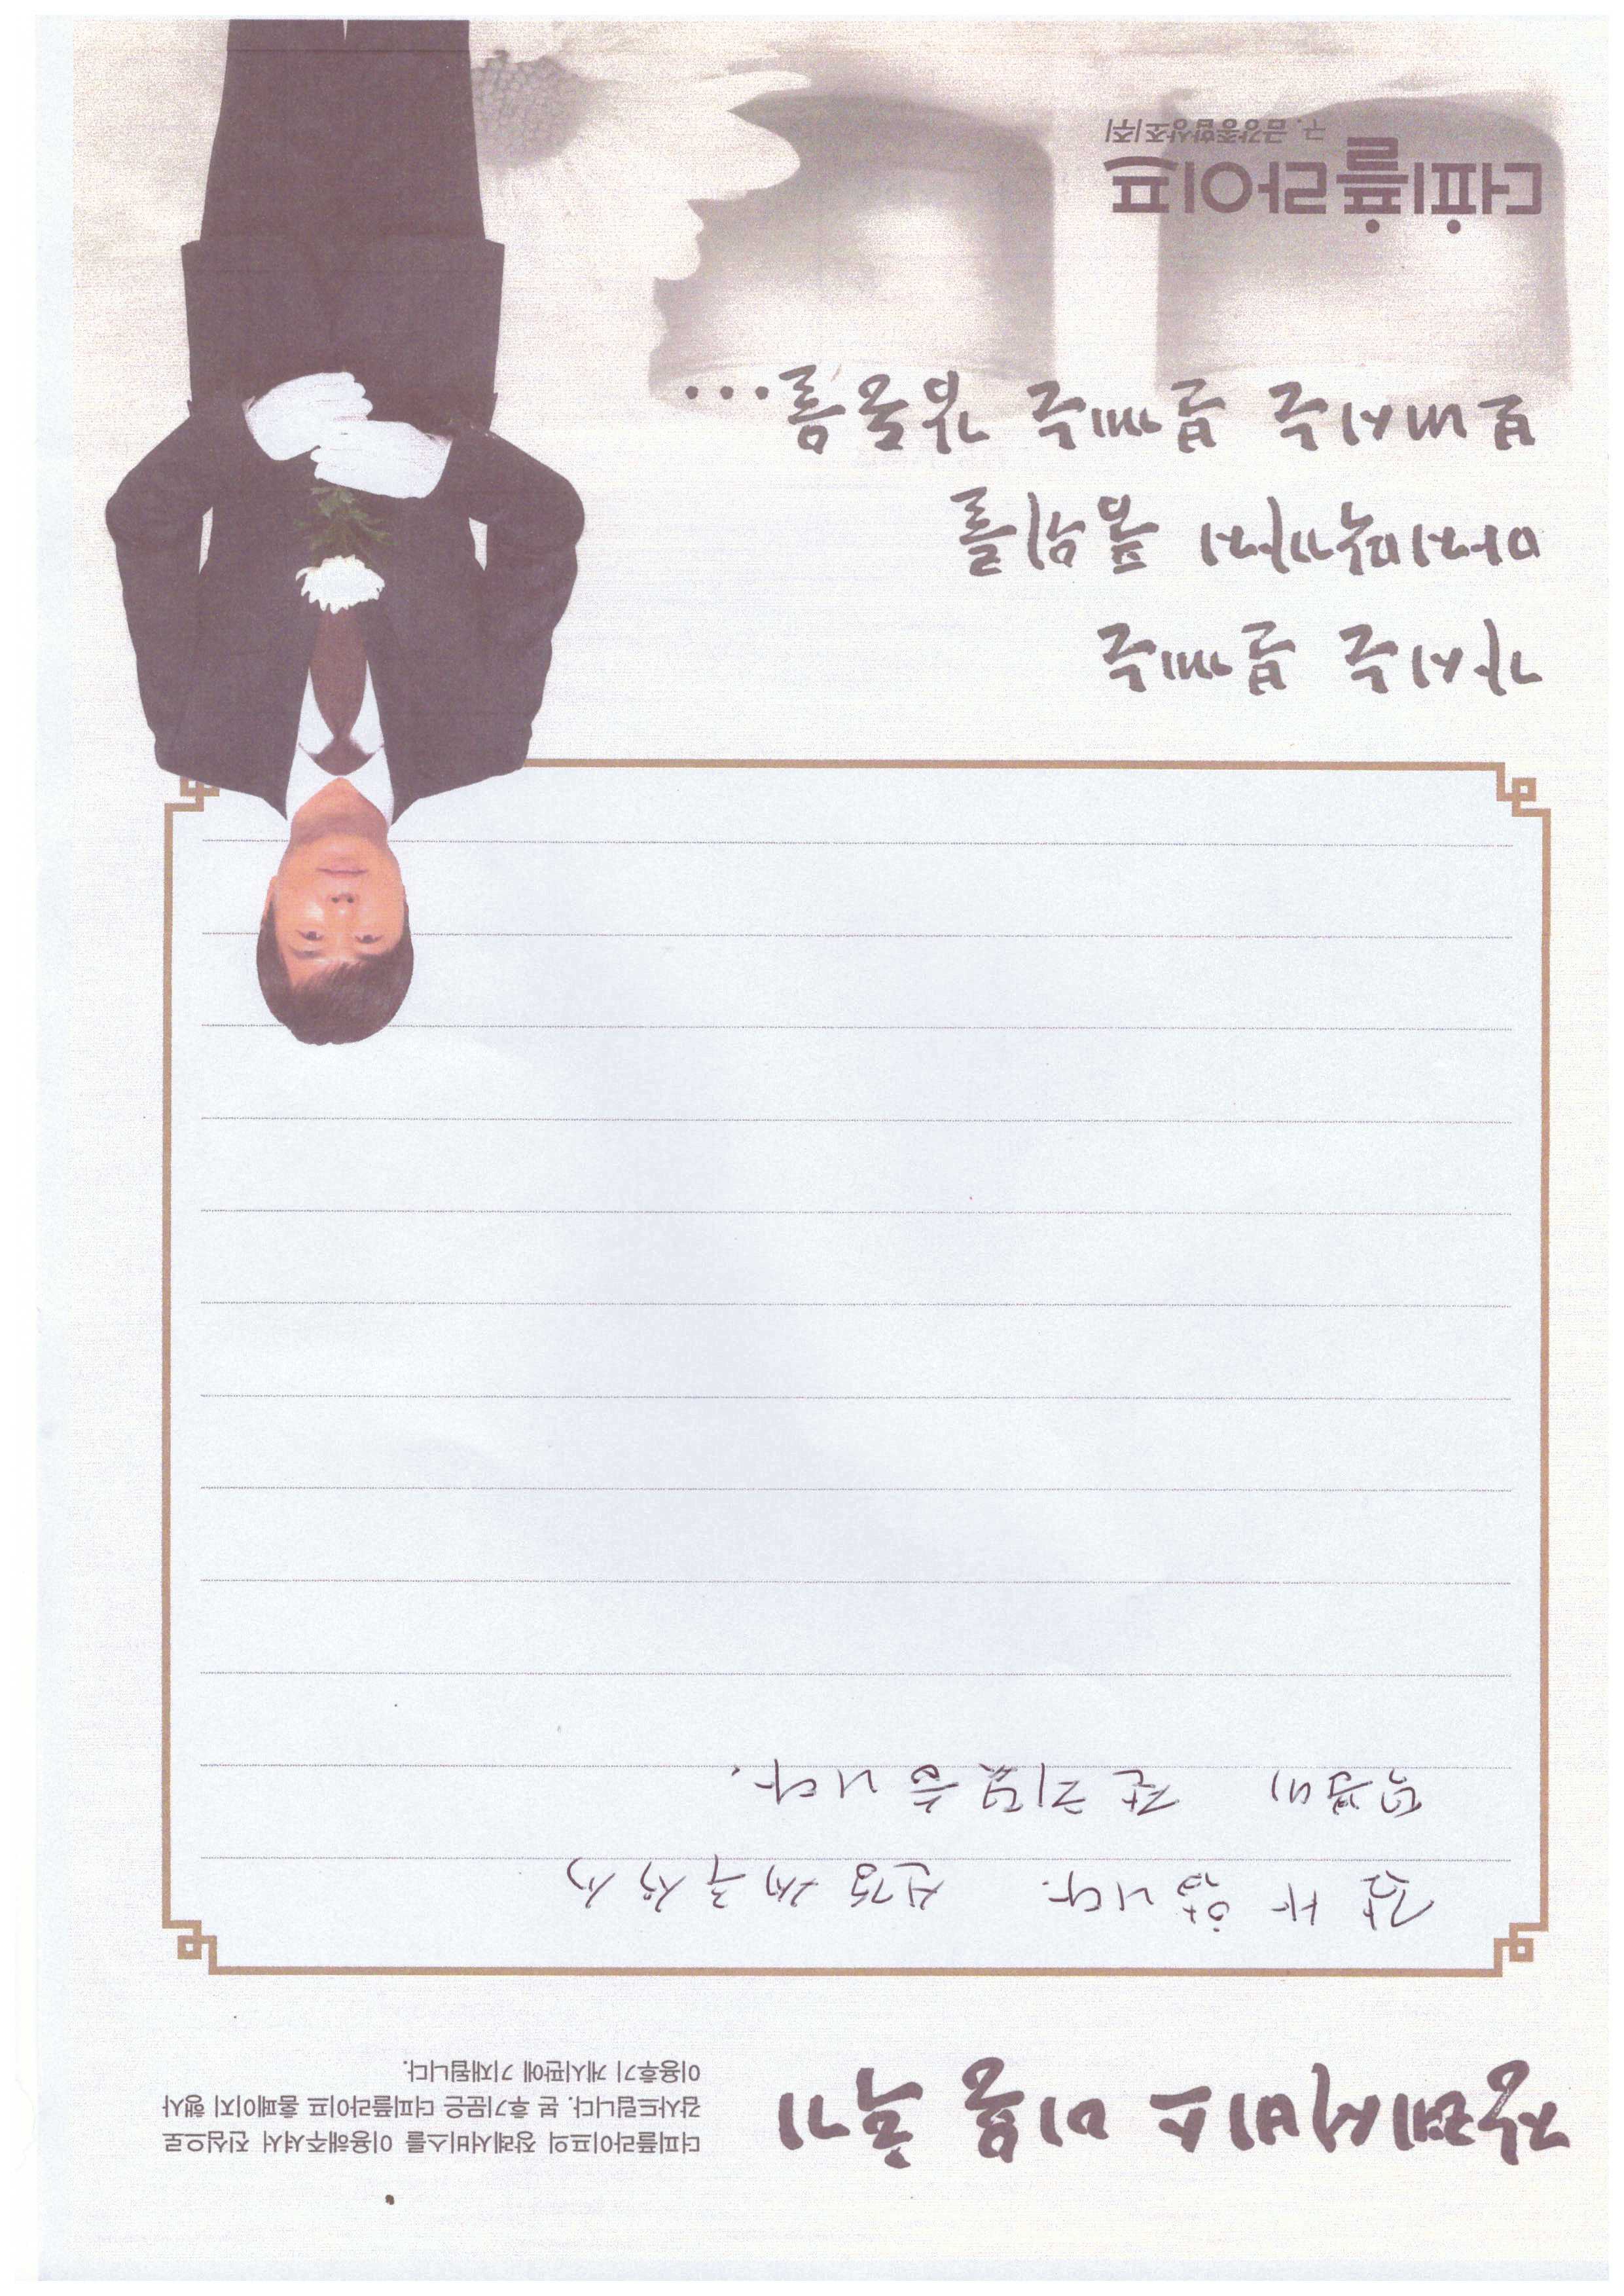 장례서비스 이용 후기
더피플라이프의 장례서비스를 이용해주셔서 진심으로
감사드립니다. 본 후기문은 더피플라이프 홈페이지 행사
이용후기 게시판에 기재됩니다.
감사합니다. 신경써주셔서
덕분에 잘
가시는 분께는
마지막까지 품위를
보내시는 분께는
더피플라이프
구. 금강종합상조(주)